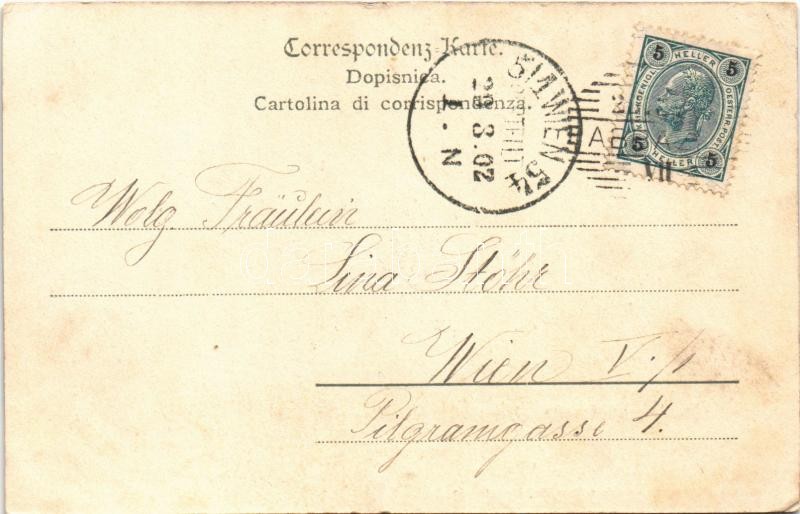 Correspondenz-Karte.
Dopisnica.
Cartolina di corrispondenza.
5/1 WIEN 54
BESTELLT
3.02
1-N
VII
5 HELLER 5
KAIS. KOENIGL.
OESTERR. POST
5 HELLER 5
Wolg. Fräulein
Lina Stöhr
Wien V./1
Pilgramgasse 4.